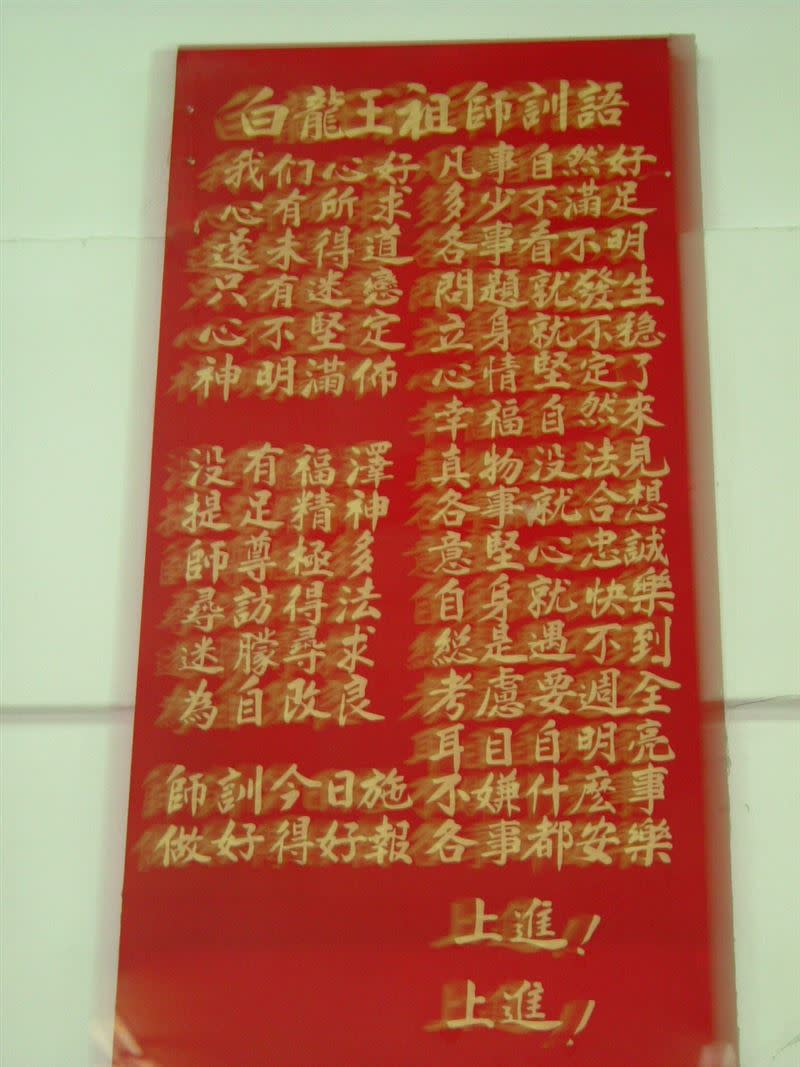 白龍王祖師訓語
我们心好 凡事自然好
心有所求 多少不滿足
還未得道 各事看不明
只有迷戀 問題就發生
心不堅定 立身就不稳
神明滿佈 心情堅定了
幸福自然來
没有福澤 真物没法見
提足精神 各事就合想
師尊極多 意堅心忠誠
尋訪得法 自身就快樂
迷朦尋求 総是遇不到
為自改良 考慮要週全
耳目自明亮
師訓今日施 不嫌什麽事
做好得好報 各事都安樂
上進!
上進!